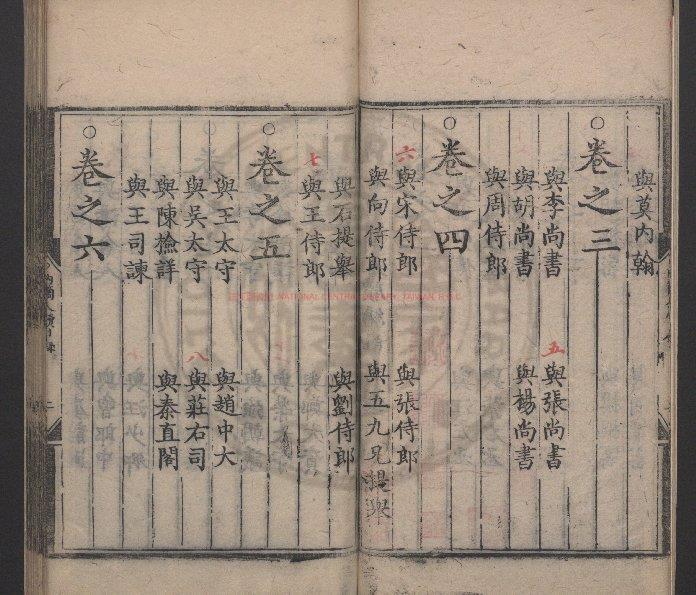 與莫內翰
○卷之三
與李尚書 五 與張尚書
與胡尚書 與楊尚書
與周侍郎
○卷之四
六 與宋侍郎 與張侍郎
與向侍郎 與五九兄提舉
與石提舉 與劉侍郎
七 與王侍郎
○卷之五
與王太守 與趙中大
與吳太守 八 與莊右司
與陳撿詳 與秦直閣
與王司諫
○卷之六
NATIONAL CENTRAL LIBRARY, TAIWAN, R.O.C.